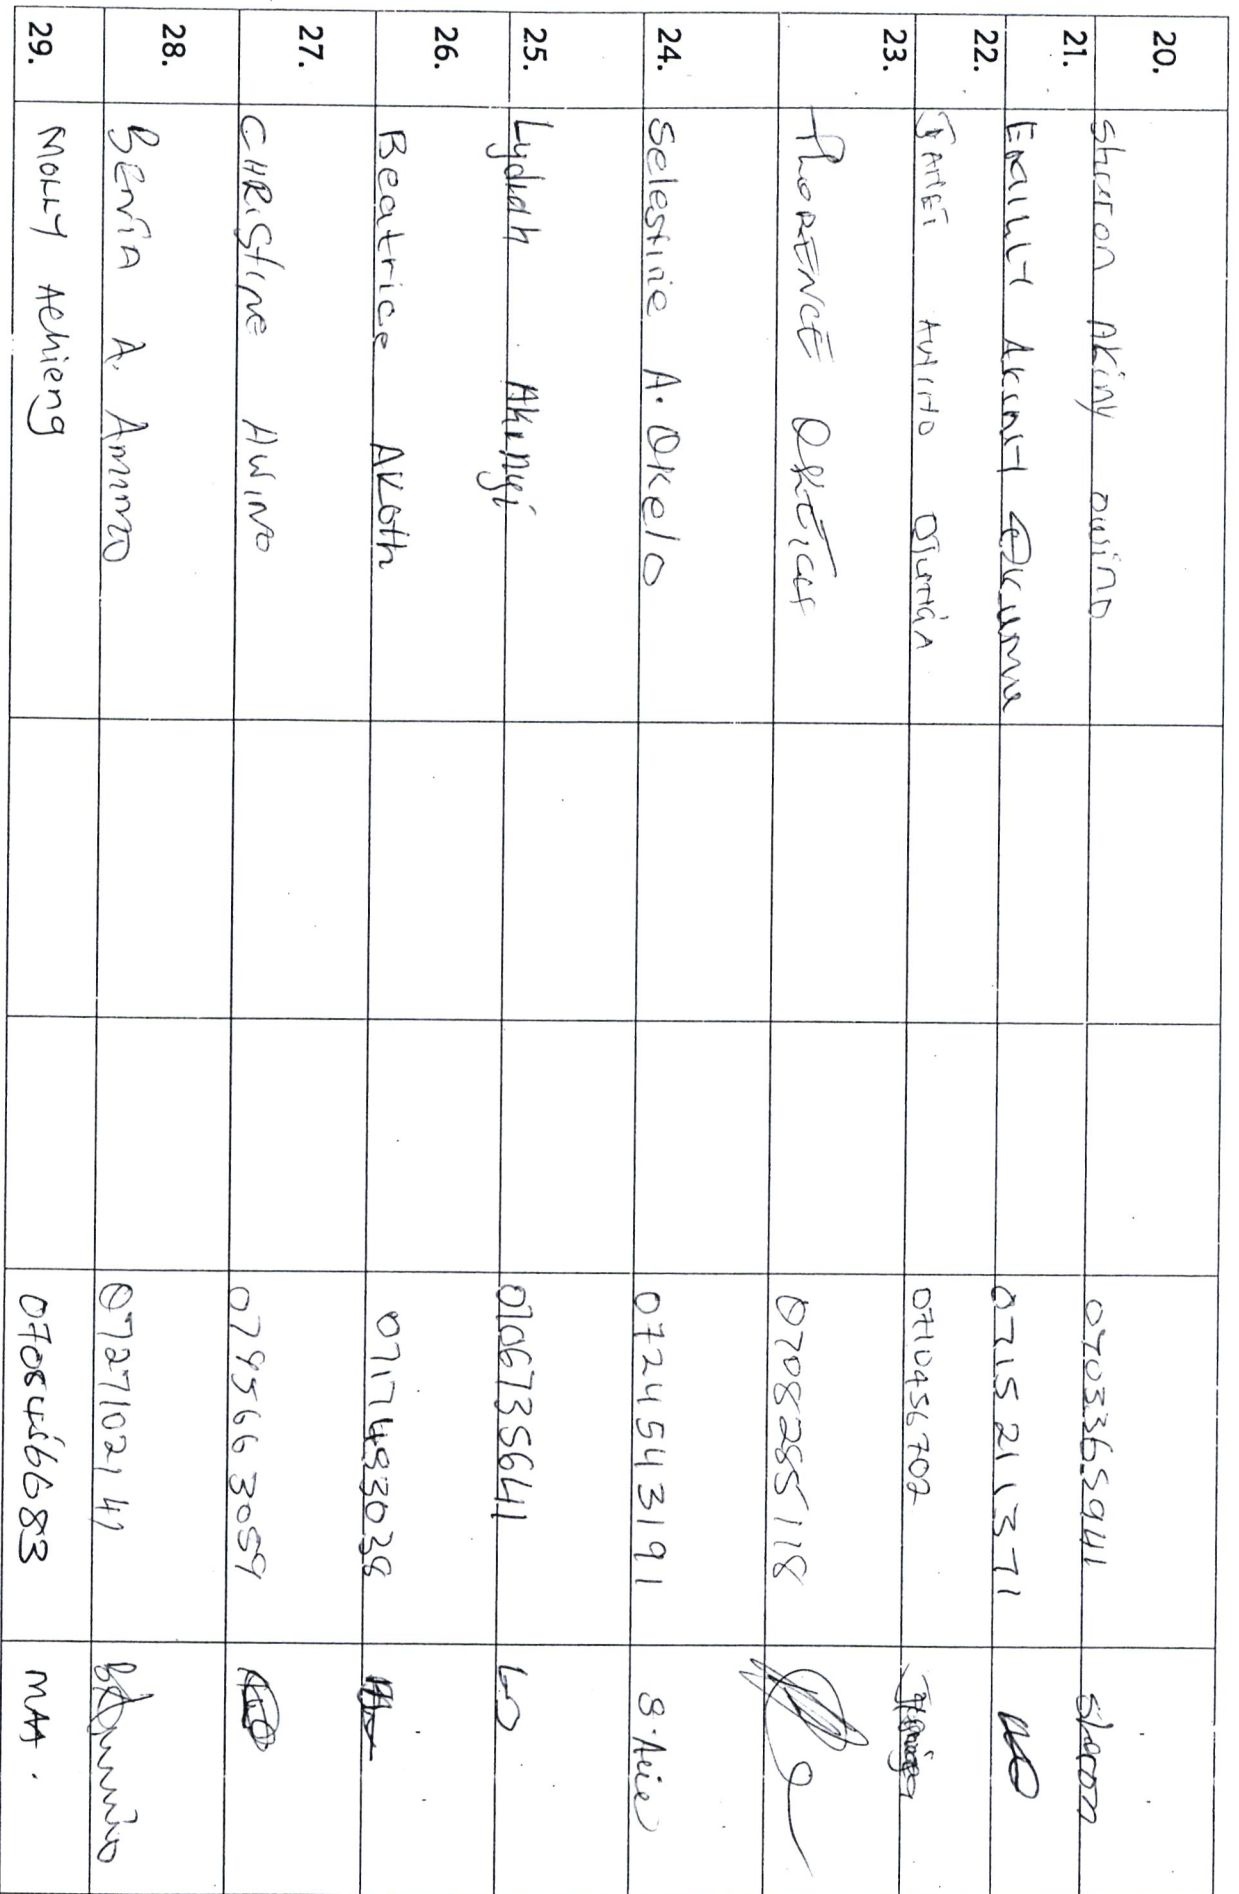 20. Sharon Akiny owino 0703365941 Sharon
21. EMILLY AKINYI 0715211371
22. JANET AWINO 0710456702
23. FLORENCE 0708285118
24. Selestine A. Okelo 0724543191
25. Lydiah Akinyi 0706735641
26. Beatrice AKoth 0717483038
27. CHRISTINE AWINO 0795663059
28. BENTA A. Amimo 0727102141
29. MOLLY AChieng 0708456683 MAA.